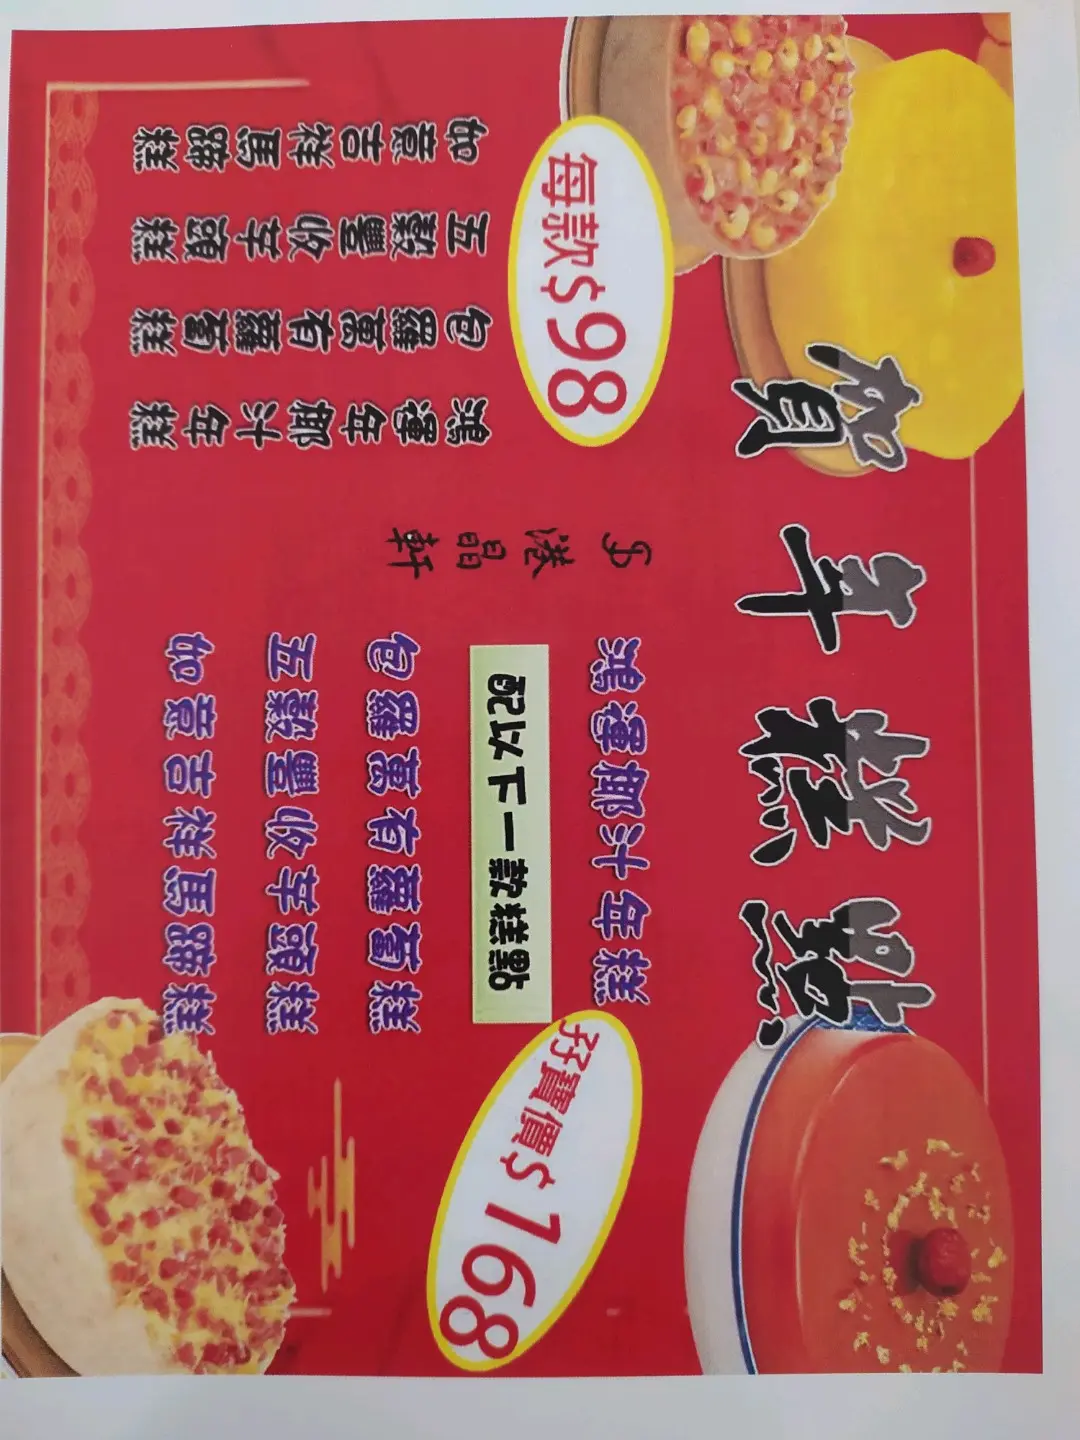 賀年糕點
每款$98
鴻運年椰汁年糕
包羅萬有蘿蔔糕
五穀豐收芋頭糕
如意吉祥馬蹄糕
港晶軒
鴻運椰汁年糕
孖寶價$168
配以下一款糕點
包羅萬有蘿蔔糕
五穀豐收芋頭糕
如意吉祥馬蹄糕